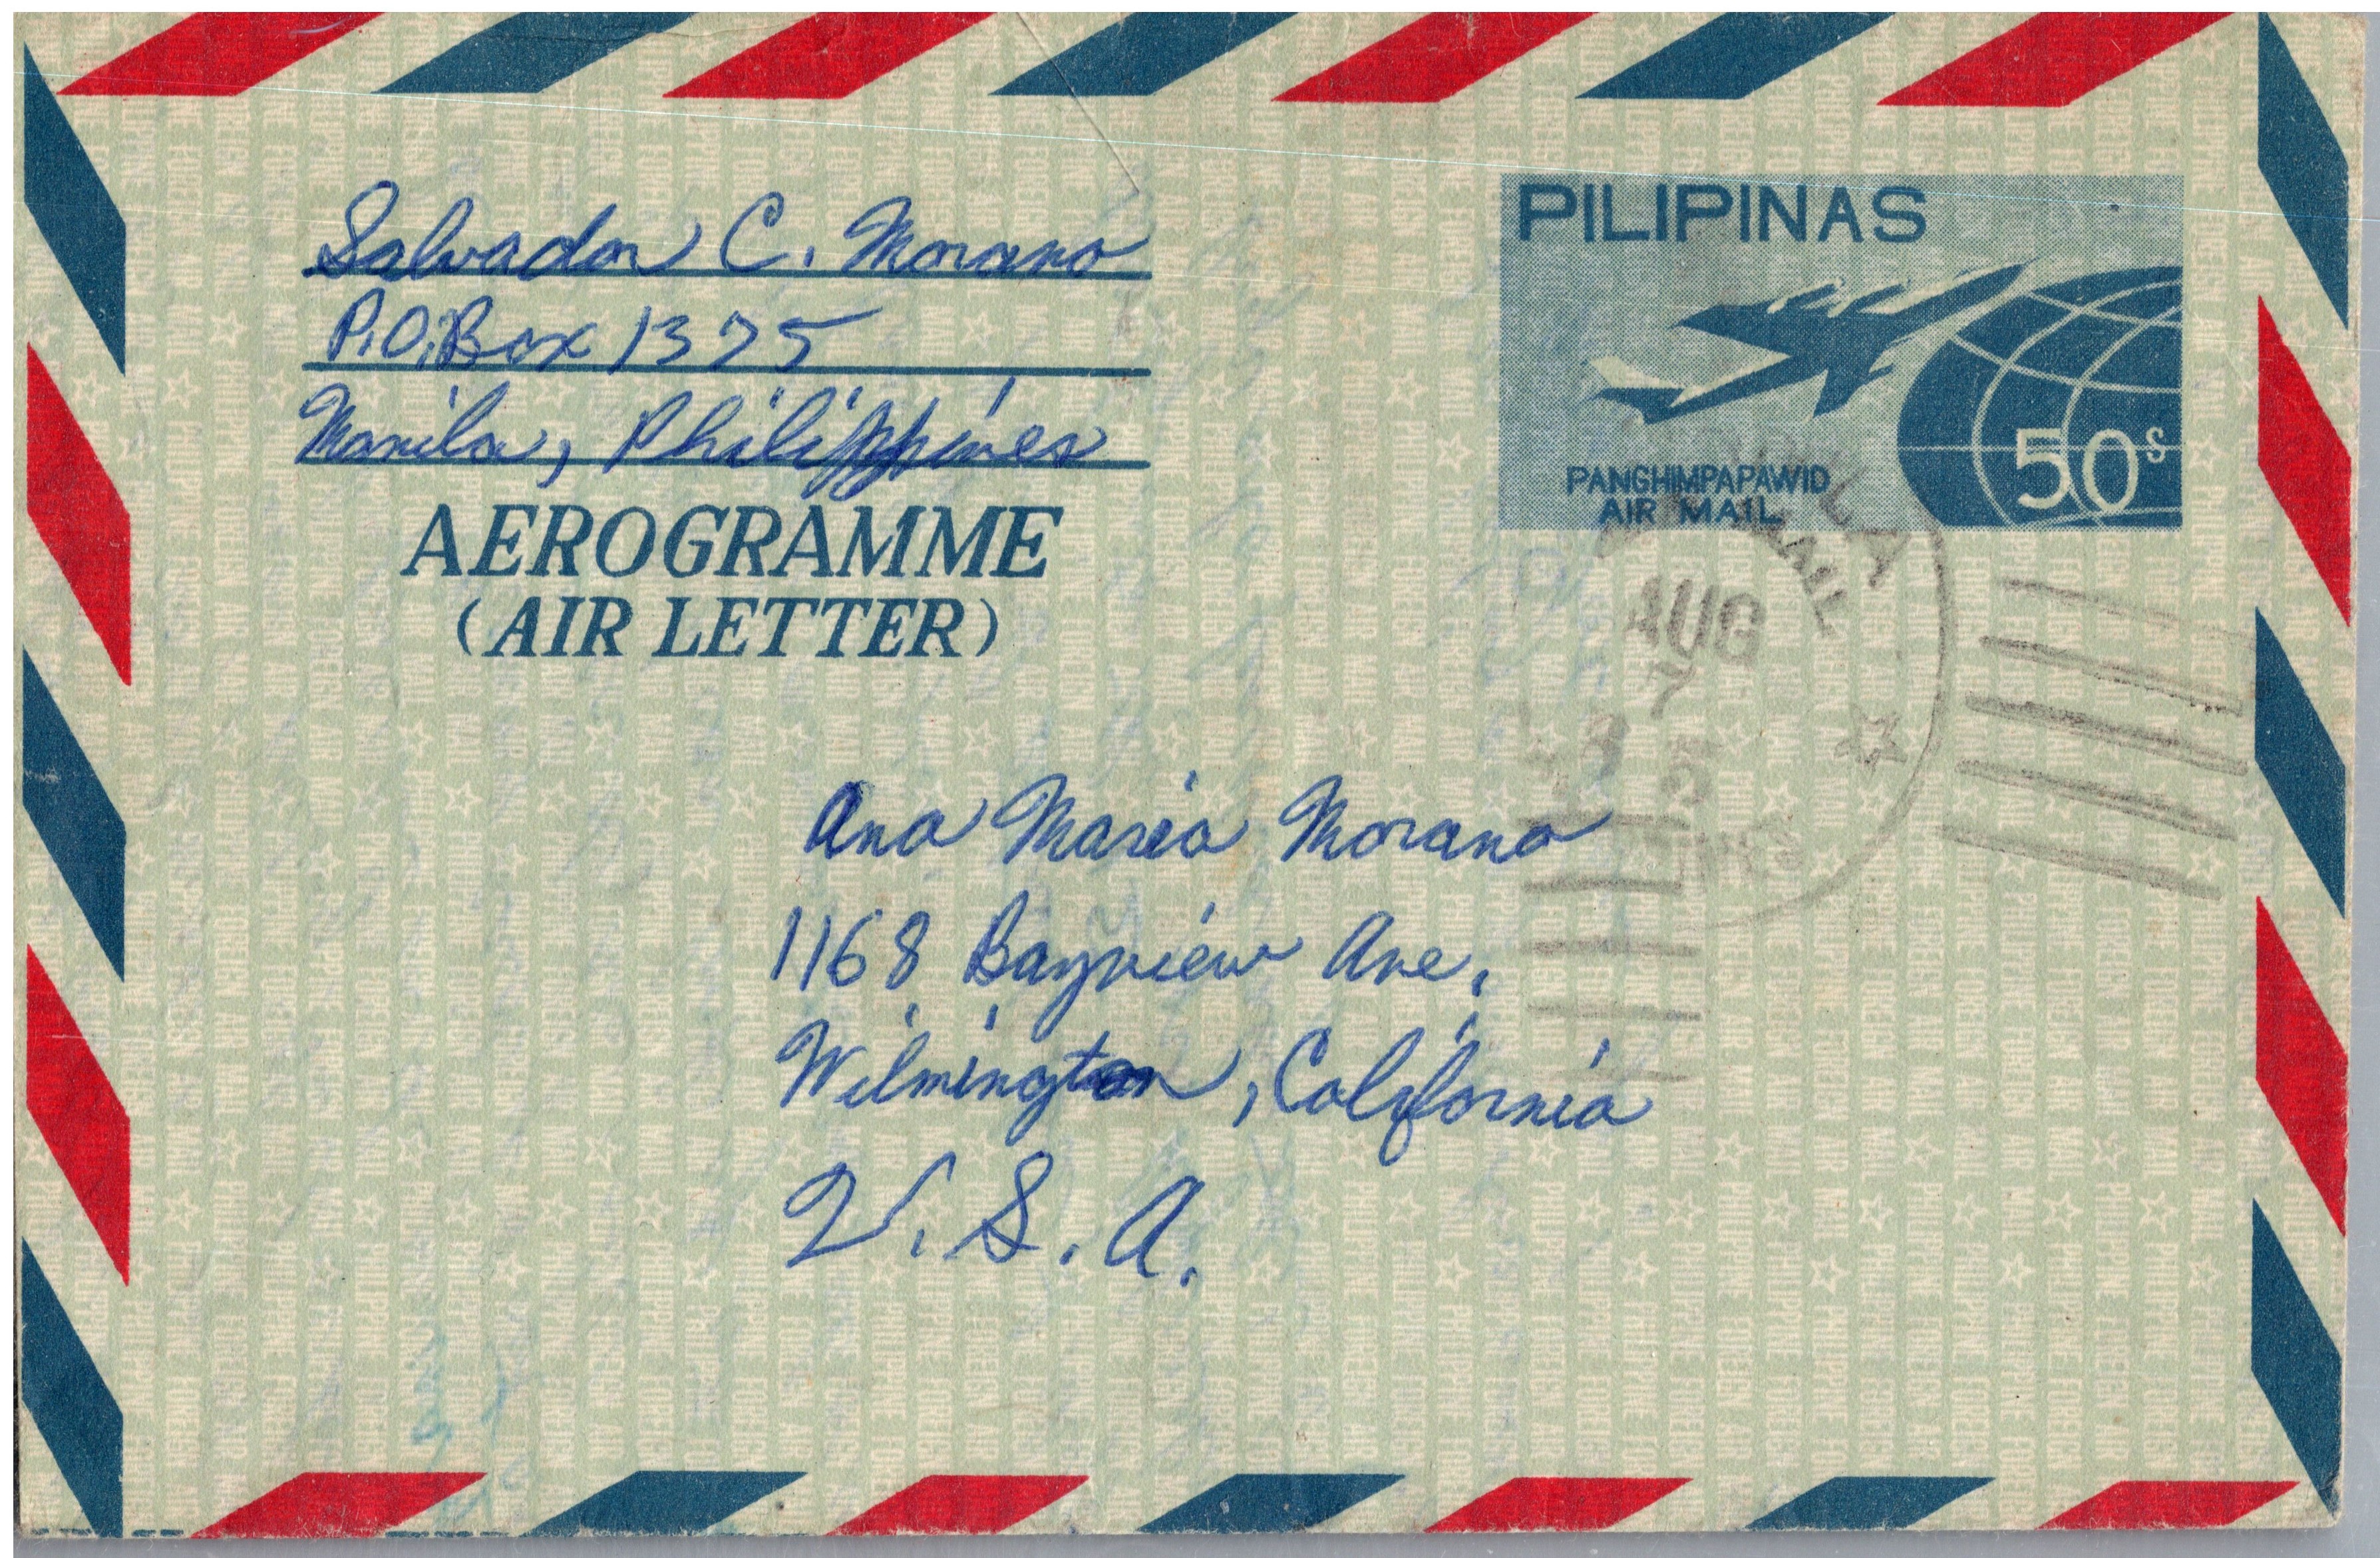 Salvador C. Morano
P.O. Box 1375
Manila, Philippines
AEROGRAMME
(AIR LETTER)
PILIPINAS
50s
PANGHIMPAPAWID
AIR MAIL
MAIL
AUG
7
Ana Maria Morano
1168 Bayview Ave.
Wilmington, California
U.S.A.